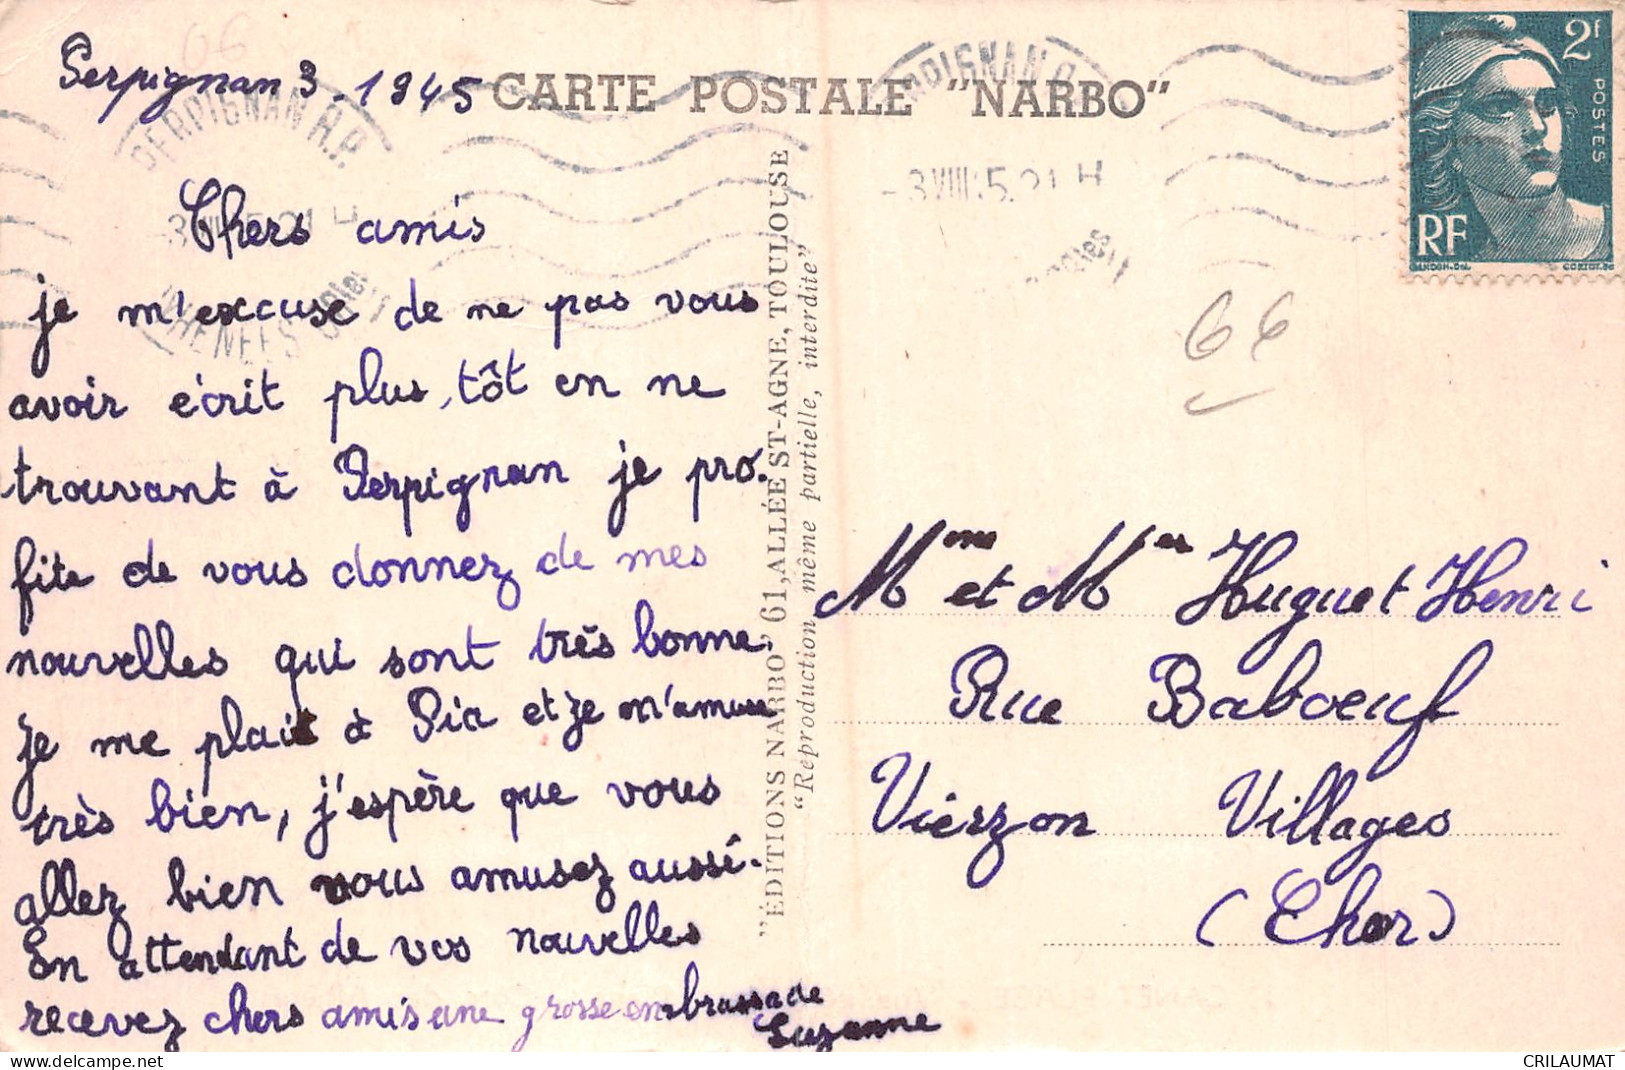 Perpignan 3. 1945
CARTE POSTALE "NARBO"
PERPIGNAN R.P.
PERPIGNAN R.
-3 VIII 45.21 H
2f
POSTES
RF
66
Chers amis
je m'excuse de ne pas vous
avoir écrit plus tôt en ne
trouvant à Perpignan je pro.
fite de vous donnez de mes
nouvelles qui sont très bonne.
Je me plait à Pia et Je m'amuse
très bien, j'espère que vous
allez bien vous amusez aussi.
En attendant de vos nouvelles
recevez chers amis une grosse embrassade
Suzanne
"ÉDITIONS NARBO" 61, ALLÉE ST-AGNE, TOULOUSE
"Reproduction, même partielle, interdite"
Mme et Mer Huguet Henri
Rue Baboeuf
Vierzon Villages
(Cher)
CRILAUMAT